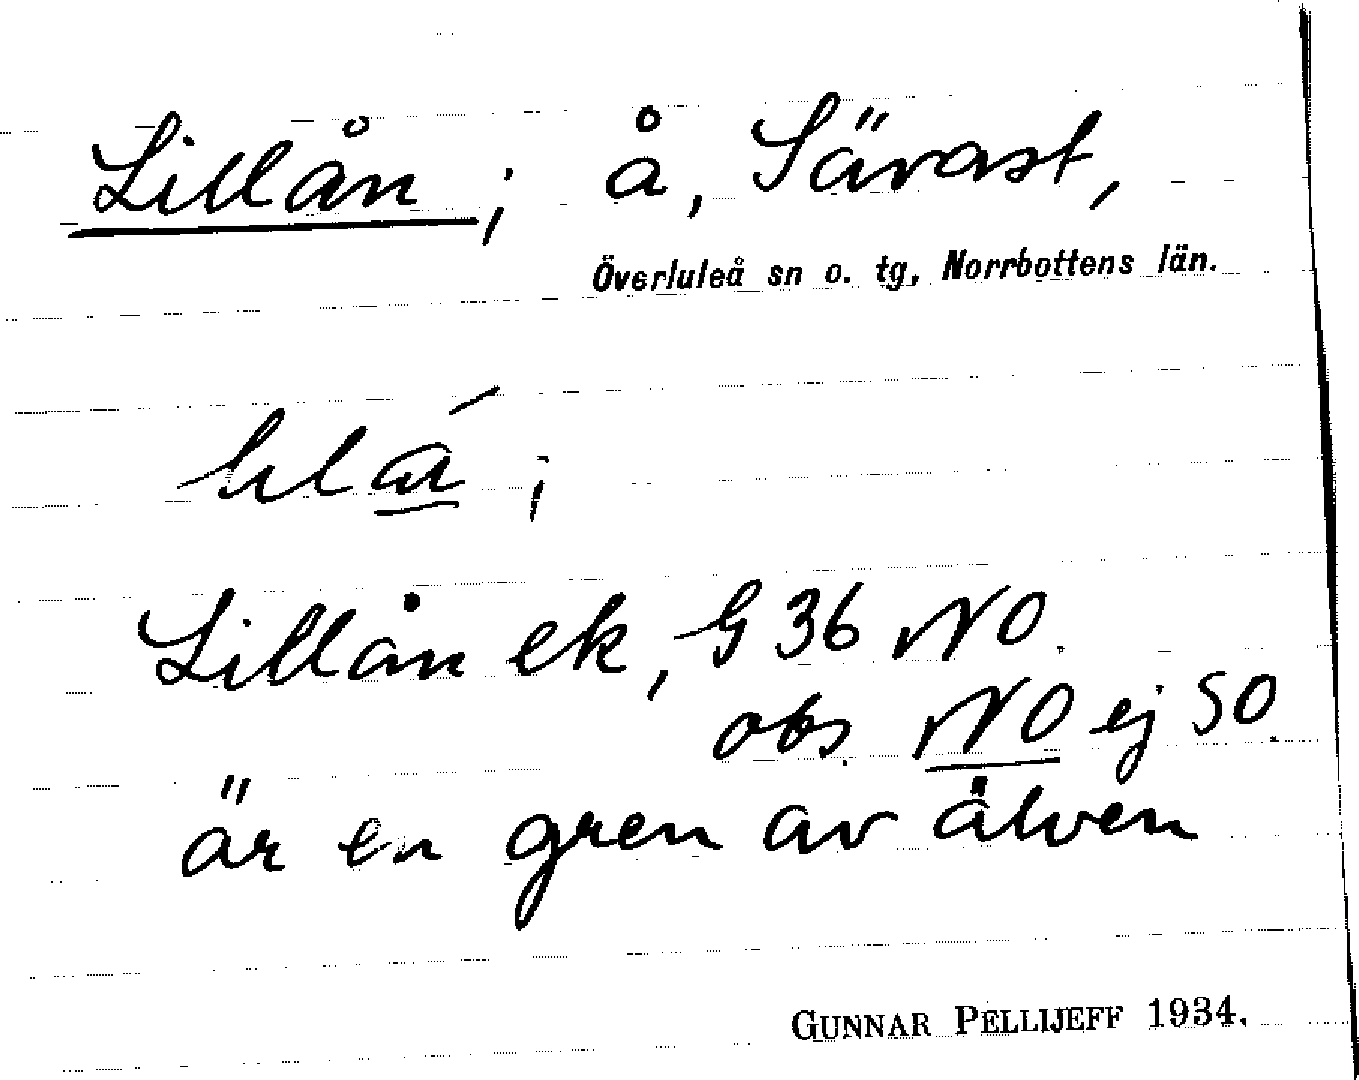 Lillån; å, Sävast,
Överluleå sn o. tg, Norrbottens län.
Lillån ek, G 36 NO.
obs. NO ej SO.
är en gren av älven
GUNNAR PELLIJEFF 1934.